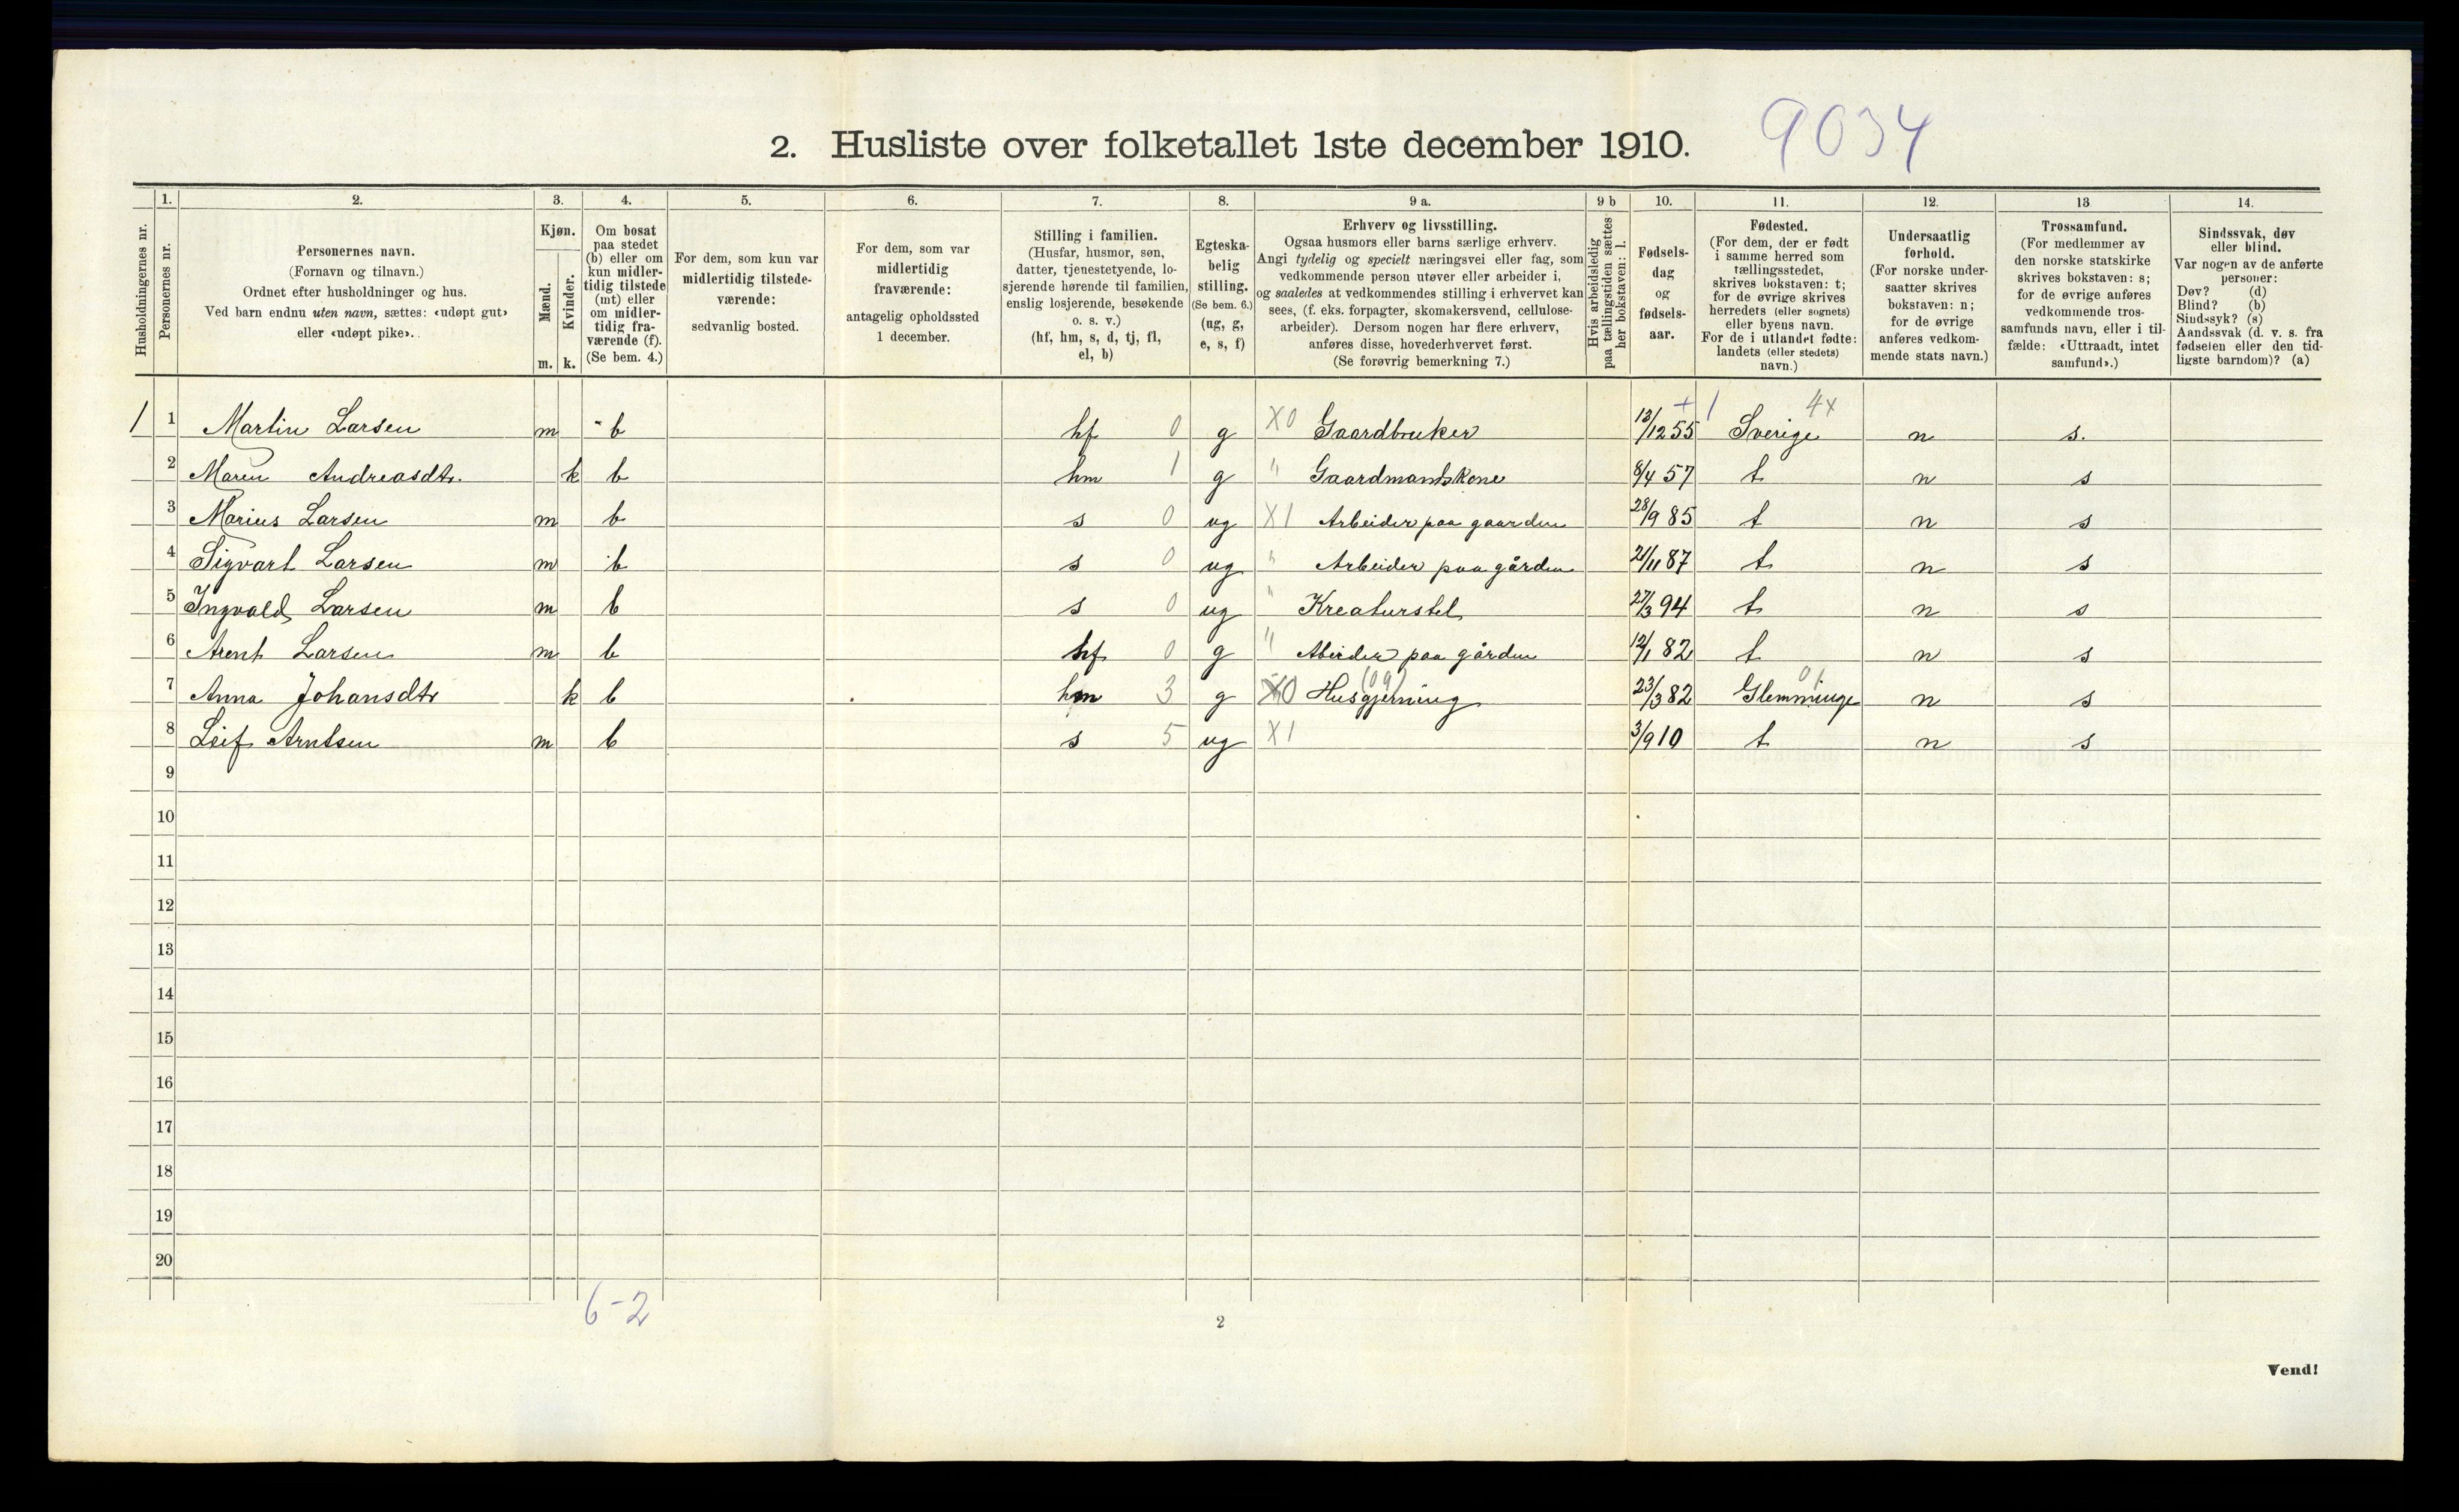 2. Husliste over folketallet 1ste december 1910. 9034
Husholdningernes nr.
1. Personernes nr.
2. Personernes navn.
(Fornavn og tilnavn.)
Ordnet efter husholdninger og hus.
Ved barn endnu uten navn, sættes: «udøpt gut»
eller «udøpt pike».
3. Kjøn.
Mænd. m.
Kvinder. k.
4. Om bosat
paa stedet
(b) eller om
kun midler-
tidig tilstede
(mt) eller
om midler-
tidig fra-
værende (f).
(Se bem. 4.)
5. For dem, som kun var
midlertidig tilstede-
værende:
sedvanlig bosted.
6. For dem, som var
midlertidig
fraværende:
antagelig opholdssted
1 december.
7. Stilling i familien.
(Husfar, husmor, søn,
datter, tjenestetyende, lo-
sjerende hørende til familien,
enslig losjerende, besøkende
o. s. v.)
(hf, hm, s, d, tj, fl,
el, b)
8. Egteska-
belig
stilling.
(Se bem. 6.)
(ug, g,
e, s, f)
9 a. Erhverv og livsstilling.
Ogsaa husmors eller barns særlige erhverv.
Angi tydelig og specielt næringsvei eller fag, som
vedkommende person utøver eller arbeider i,
og saaledes at vedkommendes stilling i erhvervet kan
sees, (f. eks. forpagter, skomakersvend, cellulose-
arbeider). Dersom nogen har flere erhverv,
anføres disse, hovederhvervet først.
(Se forøvrig bemerkning 7.)
9 b Hvis arbeidsledig
paa tællingstiden sættes
her bokstaven: l.
10. Fødsels-
dag
og
fødsels-
aar.
11. Fødested.
(For dem, der er født
i samme herred som
tællingsstedet,
skrives bokstaven: t;
for de øvrige skrives
herredets (eller sognets)
eller byens navn.
For de i utlandet fødte:
landets (eller stedets)
navn.)
12. Undersaatlig
forhold.
(For norske under-
saatter skrives
bokstaven: n;
for de øvrige
anføres vedkom-
mende stats navn.)
13 Trossamfund.
(For medlemmer av
den norske statskirke
skrives bokstaven: s;
for de øvrige anføres
vedkommende tros-
samfunds navn, eller i til-
fælde: «Uttraadt, intet
samfund».)
14. Sindssvak, døv
eller blind.
Var nogen av de anførte
personer:
Døv? (d)
Blind? (b)
Sindssyk? (s)
Aandssvak (d. v. s. fra
fødselen eller den tid-
ligste barndom)? (a)
1 1 Martin Larsen m b hf 0 g X0 Gaardbruker 13/12 55 + 1 Sverige 4x n s.
2 Maren Andreasdtr. k b hm 1 g " Gaardmandskone 8/4 57 t n s
3 Marius Larsen m b s 0 ug X1 Arbeider paa gaarden 28/9 85 t n s
4 Sigvart Larsen m b s 0 ug " Arbeider paa gården 21/11 87 t n s
5 Ingvald Larsen m b s 0 ug " Kreaturstel 27/3 94 t n s
6 Arent Larsen m b hf 0 g " Abeider paa gården 12/1 82 t n s
7 Anna Johansdtr k b hm 3 g X0 Husgjerning (09) 23/3 82 Glemminge 01 n s
8 Leif Arntsen m b s 5 ug X1 3/9 10 t n s
9
10
11
12
13
14
15
16
17
18
19
20
6-2
2
Vend!